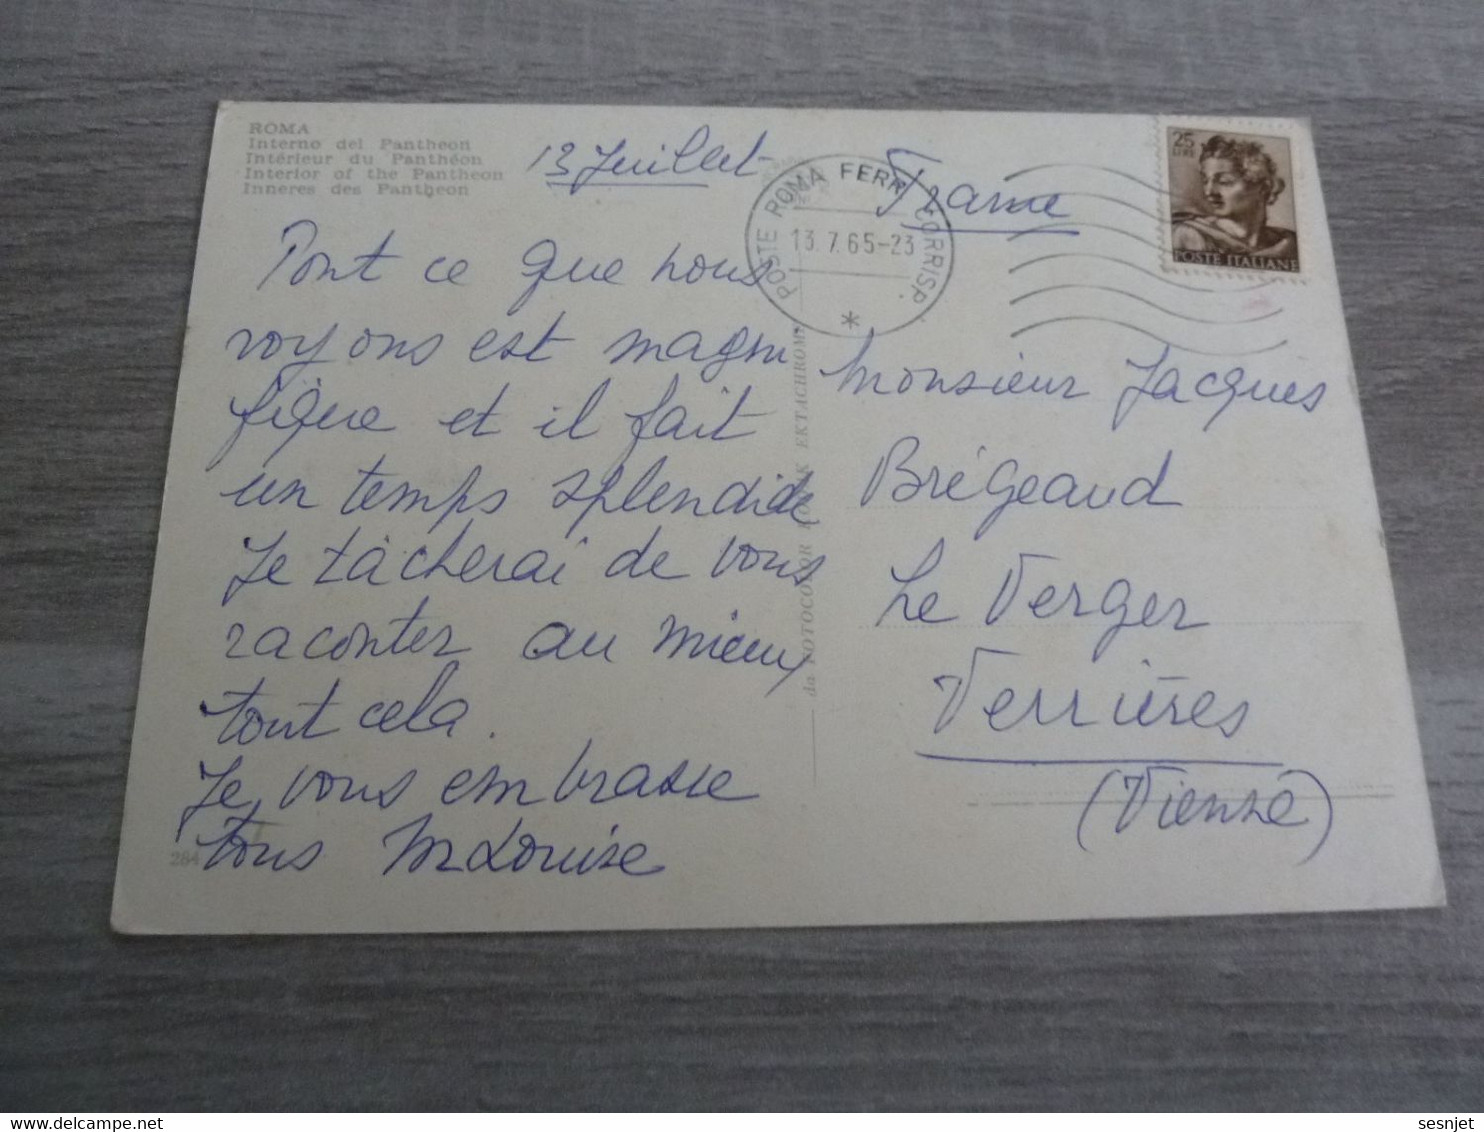 ROMA
Interno del Pantheon
Intérieur du Panthéon
Interior of the Pantheon
Inneres des Pantheon
13 Juillet
Tout ce que nous
voyons est magni
fique et il fait
un temps splendide
Je tâcherai de vous
raconter au mieux
tout cela.
Je vous embrasse
tous M Louise
284
POSTE ROMA FERR. CORRISP.
13.7.65-23
*
da FOTOCOLOR KODAK EKTACHROME
25
LIRE
POSTE ITALIANE
France
Monsieur Jacques
Brégeaud
Le Verger
Verrières
(Vienne)
sesnjet
delcampe.net